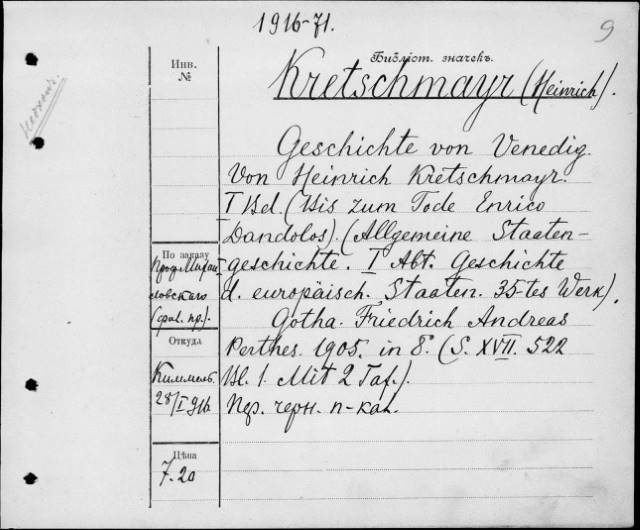 1916-71.
9
Инв.
№
Библіот. значекъ.
Kretschmayr (Heinrich).
Geschichte von Venedig.
Von Heinrich Kretschmayr.
I Bd. (Bis zum Tode Enrico
Dandolos). (Allgemeine Staaten-
geschichte. I Abt. Geschichte
d. europäisch. Staaten. 35-tes Werk).
Gotha. Friedrich Andreas
Perthes. 1905. in 8. (S. XVII. 522
Bl. 1. Mit 2 Taf.).
Пер. черн. п-кал.
По заказу
Проф. Митро
словскаго
Откуда
Киммель.
28/I 916
Цѣна
7-20